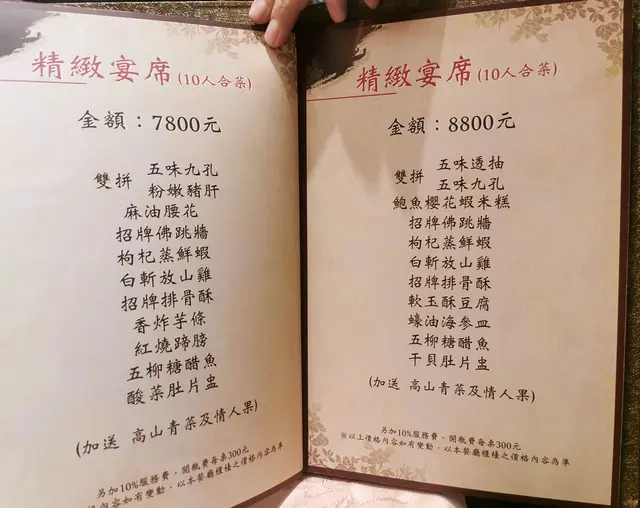 精緻宴席(10人合菜)
金額：7800元
雙拼 五味九孔
粉嫩豬肝
麻油腰花
招牌佛跳牆
枸杞蒸鮮蝦
白斬放山雞
招牌排骨酥
香炸芋條
紅燒蹄膀
五柳糖醋魚
酸菜肚片盅
(加送 高山青菜及情人果)
另加10%服務費，開瓶費每桌300元
格內容如有變動，以本餐廳櫃檯之價格內容為準
精緻宴席(10人合菜)
金額：8800元
雙拼 五味透抽
五味九孔
鮑魚櫻花蝦米糕
招牌佛跳牆
枸杞蒸鮮蝦
白斬放山雞
招牌排骨酥
軟玉酥豆腐
蠔油海參皿
五柳糖醋魚
干貝肚片盅
(加送 高山青菜及情人果)
另加10%服務費，開瓶費每桌300元
※以上價格內容如有變動，以本餐廳櫃檯之價格內容為準